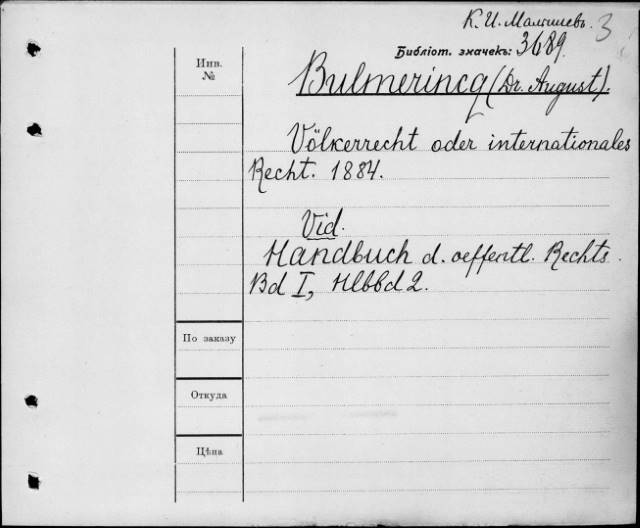 К. И. Малышевъ. 3
Библіот. значекъ: 3689.
Инв.
№
Bulmerincq (Dr. August).
Völkerrecht oder internationales
Recht. 1884.
Vid.
Handbuch d. oeffentl. Rechts.
Bd I, Hlbbd 2.
По заказу
Откуда
Цѣна